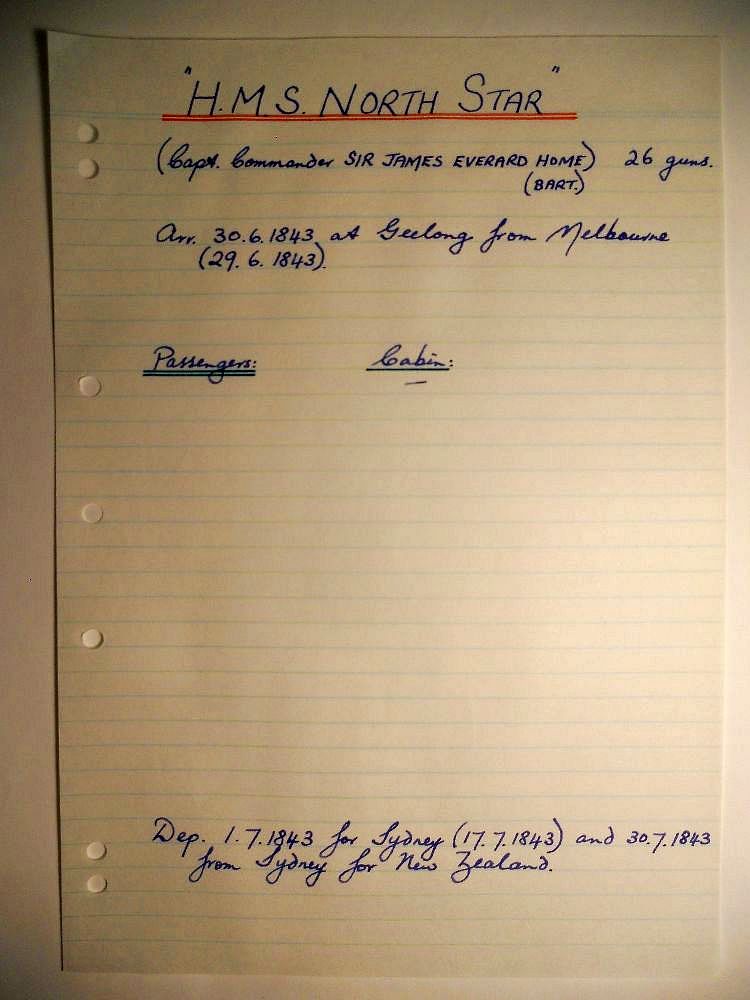 "H.M.S. NORTH STAR"
(Capt. Commander SIR JAMES EVERARD HOME) 26 guns.
(BART.)
Arr. 30.6.1843 at Geelong from Melbourne
(29.6.1843).
Passengers: Cabin:
—
Dep. 1.7.1843 for Sydney (17.7.1843) and 30.7.1843
from Sydney for New Zealand.